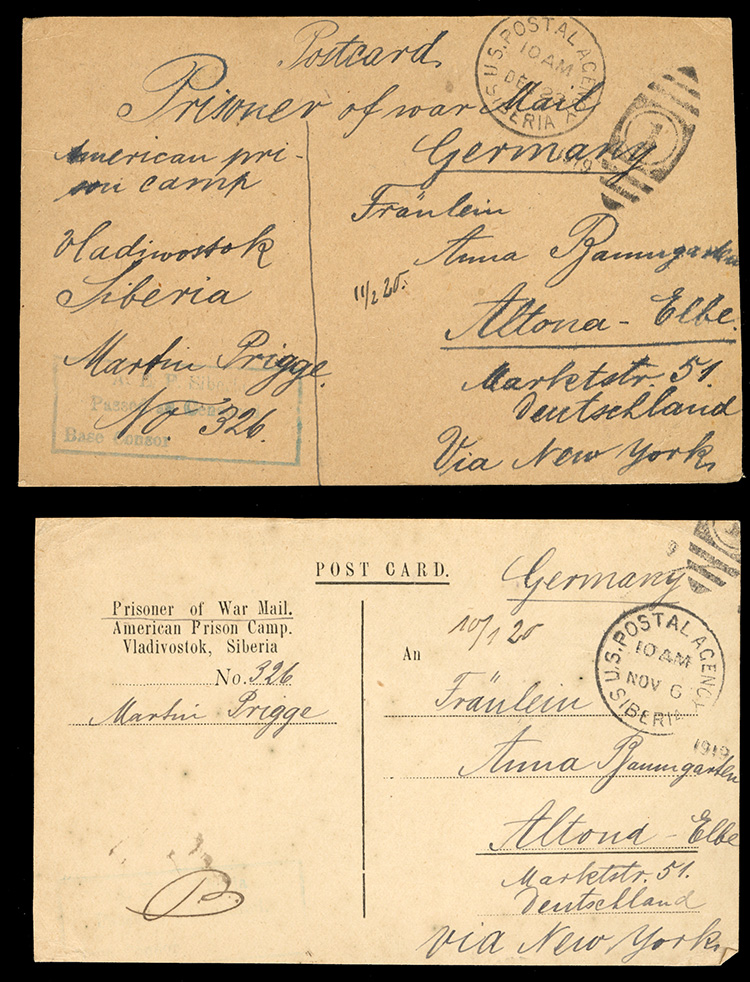 Postcard
Prisoner of war Mail
American pri-
son camp
Vladiwostok
Siberia
Martin Prigge.
No. 326.
A. E. F. Sibe
Passed
Base Censor
U.S. POSTAL AGENCY
10 AM
SIBERIA
Germany
Fräulein
Anna Baumgarten
11/2 20.
Altona - Elbe.
Marktstr. 51.
Deutschland
Via New York
POST CARD.
Prisoner of War Mail.
American Prison Camp.
Vladivostok, Siberia
No. 326
Martin Prigge
Germany
10/1 20
An
U.S. POSTAL AGENCY
10 AM
NOV 6
SIBERIA
1919
Fräulein
Anna Baumgarten
Altona - Elbe
Marktstr. 51.
Deutschland
via New York